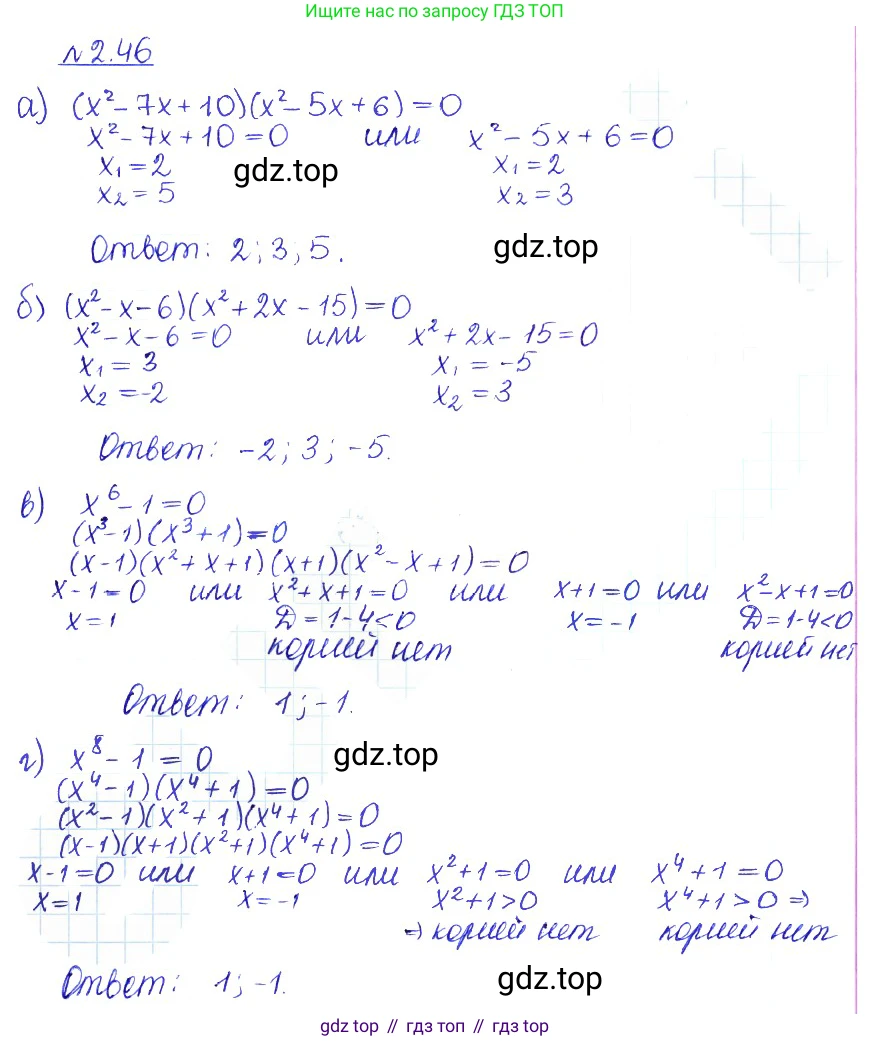 Ищите по запросу ГДЗ ТОП
№2.46
а) (x²-7x+10)(x²-5x+6)=0
x²-7x+10=0 или x²-5x+6=0
x₁=2 x₁=2
gdz.top
x₂=5 x₂=3
Ответ: 2; 3; 5. gdz.top
б) (x²-x-6)(x²+2x-15)=0
x²-x-6=0 или x²+2x-15=0
x₁=3 x₁=-5
x₂=-2 x₂=3
Ответ: -2; 3; -5.
в) x⁶-1=0
(x³-1)(x³+1)=0
(x-1)(x²+x+1)(x+1)(x²-x+1)=0
x-1=0 или x²+x+1=0 или x+1=0 или x²-x+1=0
x=1 Д=1-4<0 x=-1 Д=1-4<0
корней нет корней нет
Ответ: 1; -1.
г) x⁸-1=0 gdz.top
(x⁴-1)(x⁴+1)=0
(x²-1)(x²+1)(x⁴+1)=0
(x-1)(x+1)(x²+1)(x⁴+1)=0
x-1=0 или x+1=0 или x²+1=0 или x⁴+1=0
x=1 x=-1 x²+1>0 x⁴+1>0 ⇒
⇒ корней нет корней нет
Ответ: 1; -1. gdz.top
gdz top // гдз топ // gdz top // гдз топ